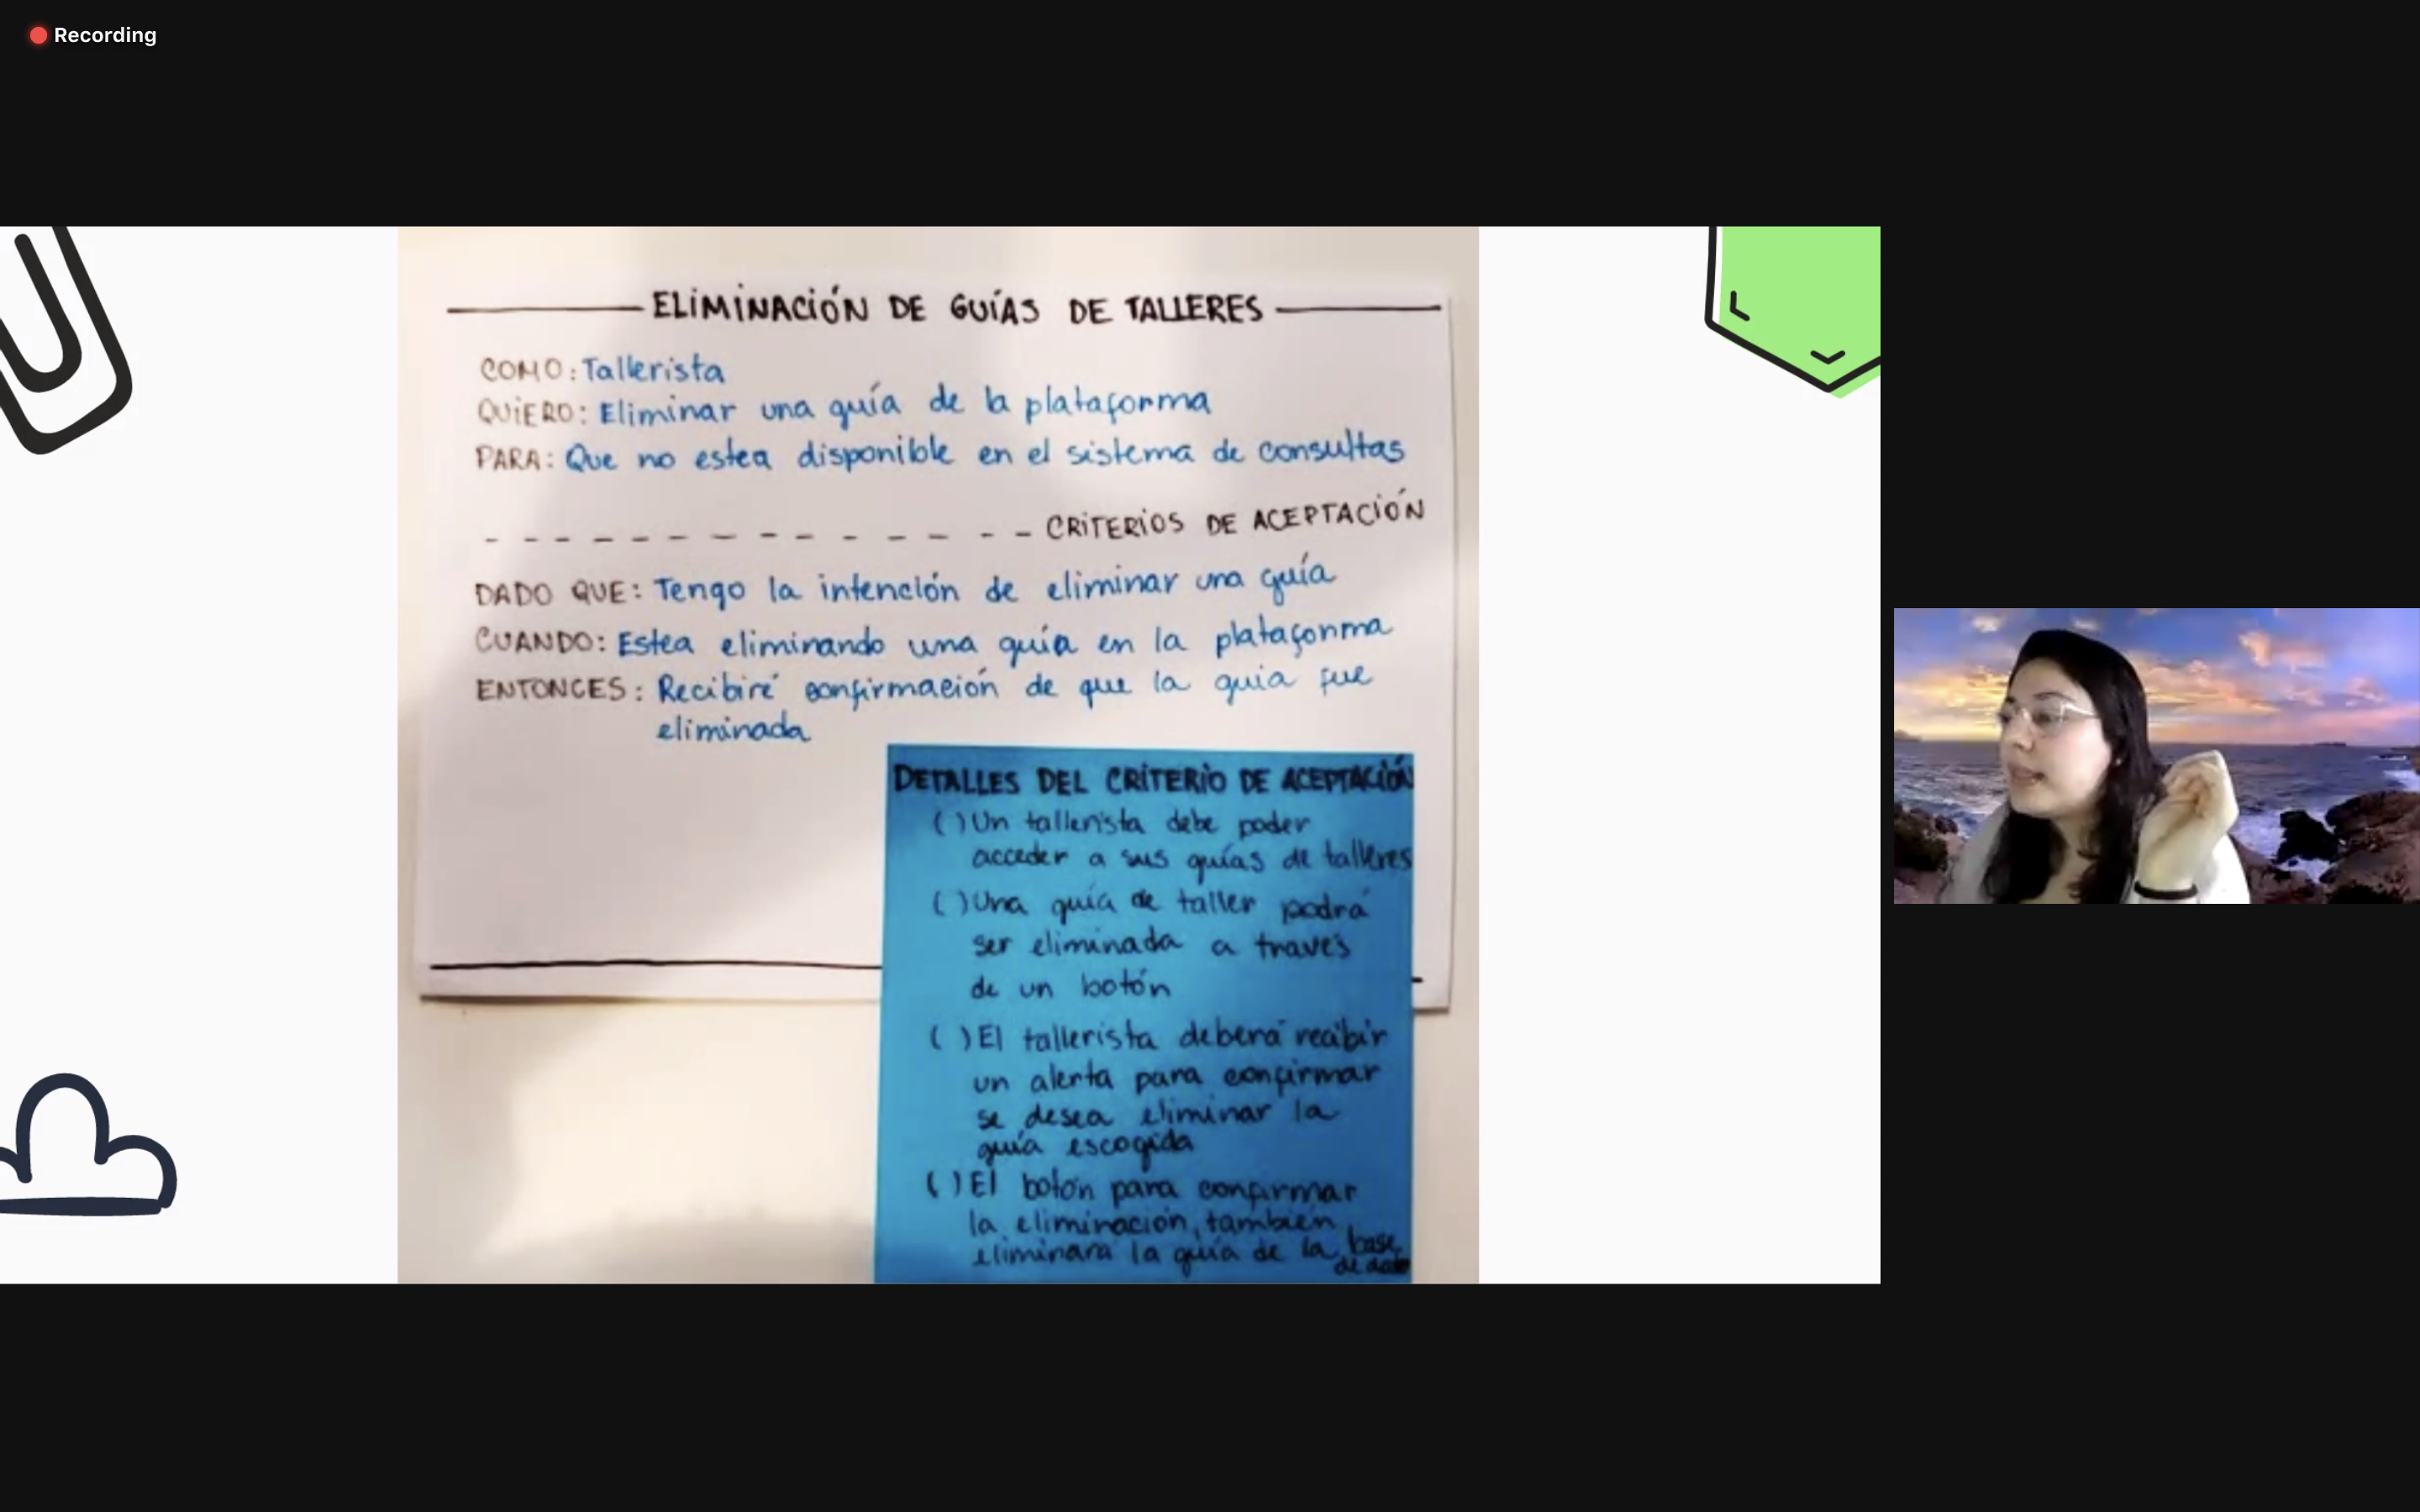 Recording
ELIMINACIÓN DE GUÍAS DE TALLERES
COMO: Tallerista
QUIERO: Eliminar una guía de la plataforma
PARA: Que no estea disponible en el sistema de consultas
CRITERIOS DE ACEPTACIÓN
DADO QUE: Tengo la intención de eliminar una guía
CUANDO: Estea eliminando una guía en la plataforma
ENTONCES: Recibiré confirmación de que la guia fue
eliminada
DETALLES DEL CRITERIO DE ACEPTACIÓN
( ) Un tallerista debe poder
acceder a sus guías de talleres
( ) Una guía de taller podrá
ser eliminada a través
de un botón
( ) El tallerista deberá recibir
un alerta para confirmar
se desea eliminar la
guía escogida
( ) El botón para confirmar
la eliminación, también
eliminará la guía de la base
de